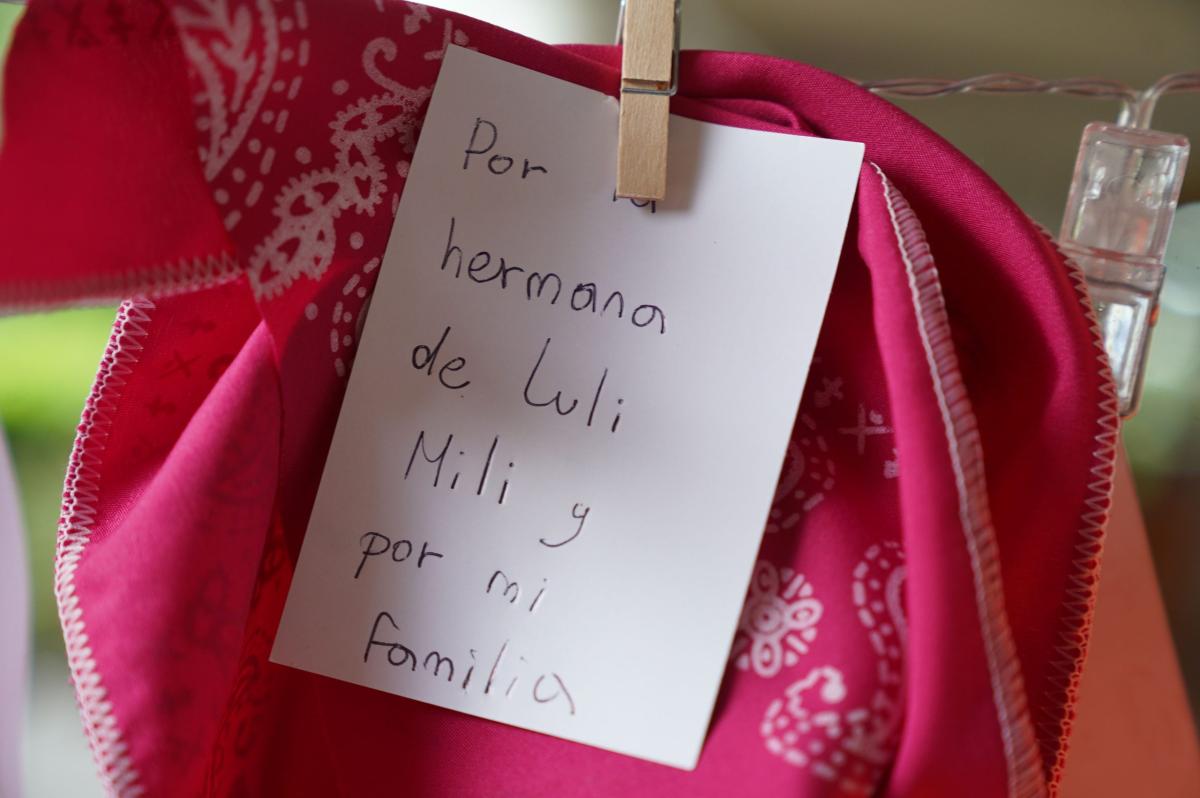 Por la
hermana
de Luli
Mili y
por mi
familia